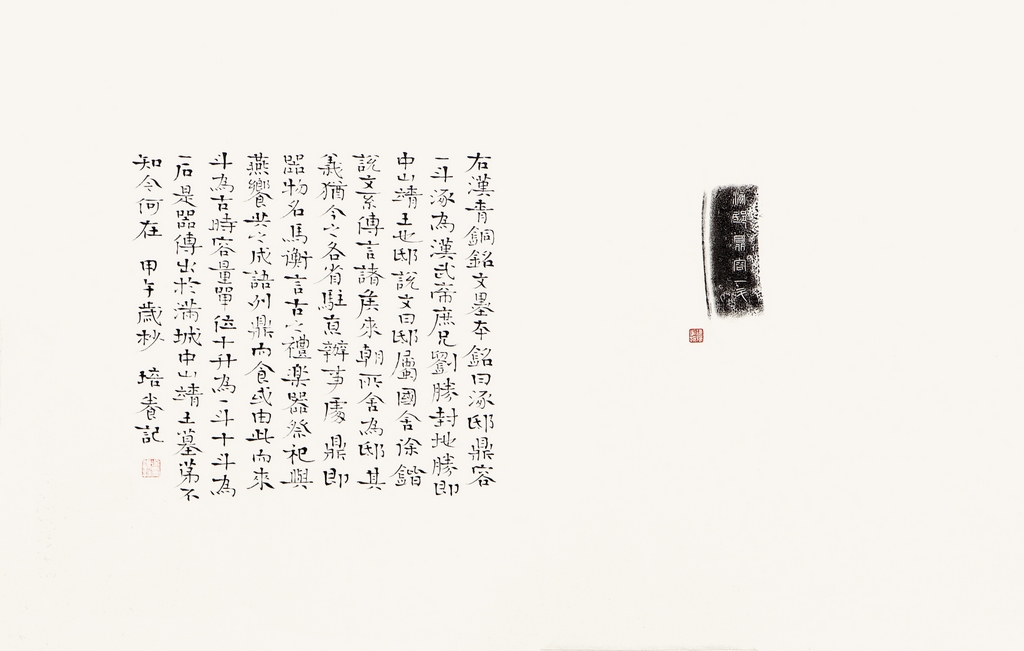 涿邸鼎容一斗
右漢青銅銘文墨本銘曰涿邸鼎容
一斗涿為漢武帝庶兄劉勝封地勝即
中山靖王也邸說文曰邸屬國舍徐鍇
說文系傳言諸矦來朝所舍為邸其
義猶今之各省駐京辦事處鼎即
器物名馬衡言古之禮樂器祭祀與
燕饗共之成語列鼎而食或由此而來
斗為古時容量單位十升為一斗十斗為
一石是器傳出於滿城中山靖王墓第不
知今何在 甲午歲杪 培養記